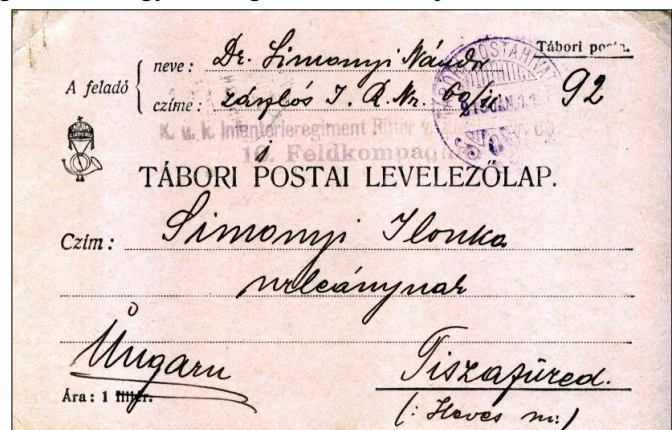 Tábori posta.
A feladó
neve: Dr. Simonyi Nándor
czíme: zászlós I. R. Nr. 60/
92
K. u. k. Infanterieregiment Ritter v.
16. Feldkompagnie
TÁBORI POSTAI LEVELEZŐLAP.
Czím: Simonyi Ilonka
urleánynak
Ungarn
Tiszafüred.
Ára: 1 fillér.
(: Heves m:)